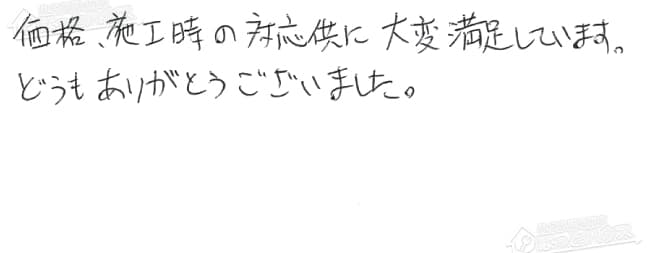 価格、施工時の対応供に大変満足しています。
どうもありがとうございました。